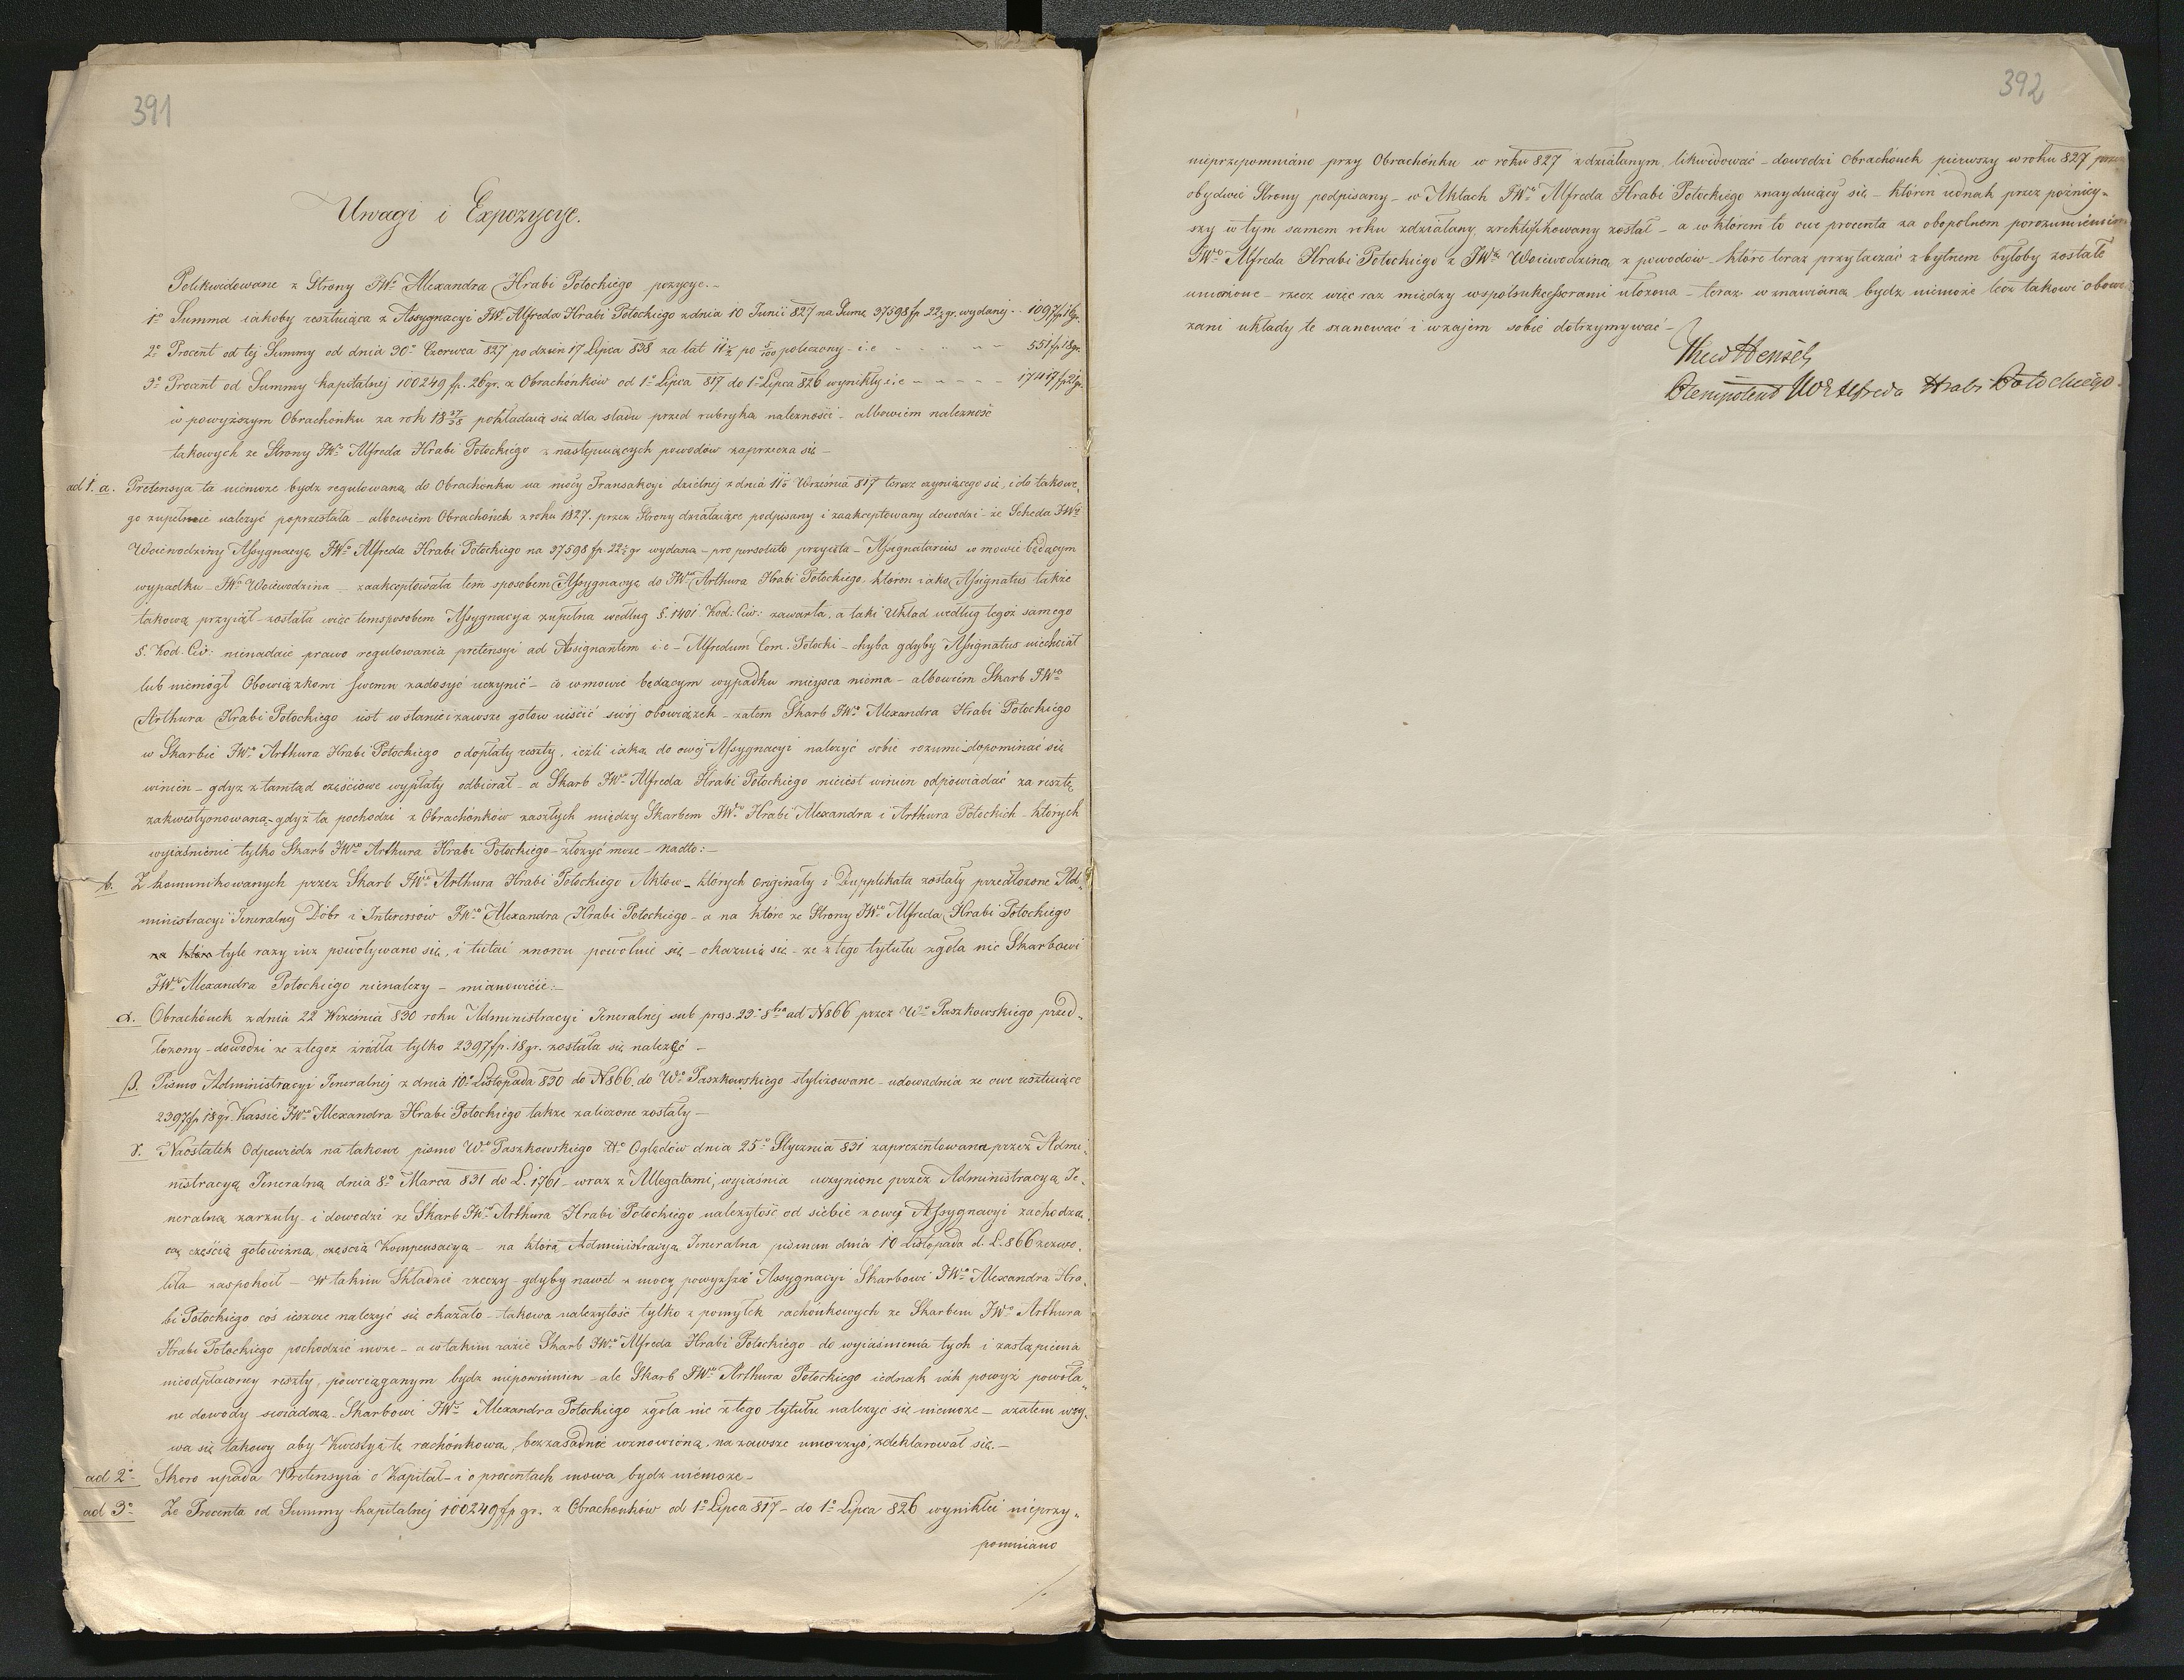 391
Uwagi i Expozycye.
Polikwidowane z Strony JWo Alexandra Hrabi Potockiego pozycye.—
1o Summa iakoby resztuiąca z Assygnacyi JWo Alfreda Hrabi Potockiego z dnia 10 Junii 827 na Sumę 37598 fp 22½ gr. wydanej - - 1097 fp 16 gr.
2o Procent od tej Summy od dnia 30o Czerwca 827 po dzień 17 Lipca 838 za lat 11 po 5/100 policzony - i.e - - - - - 551 fp 18 gr.
3o Procent od Summy kapitalnej 100249 fp. 26 gr. z Obrachónków od 1o Lipca 817 do 1o Lipca 826 wynikły i.e - - - - - 17417 fp 21 gr.
w powyższym Obrachónku za rok 18 37/38 pokładaią się dla śladu przed rubryką należności - albowiem należność
takowych ze Strony JWo Alfreda Hrabi Potockiego z następuiących powodów zaprzecza się —
ad 1. a. Pretensya ta niemoże bydz regulowaną do Obrachónku na mocy Transakcyi dzielnej z dnia 11o Września 817 teraz czyniącego się, i do takowe„
go zupełnie należyć poprzestała - albowiem Obrachónek z roku 1827. przez Strony działaiące podpisany i zaakceptowany dowodzi - że Scheda JWej
Woiewodziny Assygnacyą JWo Alfreda Hrabi Potockiego na 37598 fp 22½ gr wydaną - pro persoluto przyięła - Assignatarius w mowie będącym
wypadku - JWa Woiewodzina — zaakceptowała tem sposobem Assygnacyę do JWo Arthura Hrabi Potockiego, któren iako Assignatus także
takową przyiął - została więc temsposobem Assygnacya zupełna według §. 1401 Kod: Civ: zawartą, a taki Układ według tegoż samego
§. Kod. Civ: nienadaie prawo regulowania pretensyi ad Assignantem i.e - Alfredum Com. Potocki - chyba gdyby Assignatus niechciał
lub niemógł Obowiązkowi swemu zadosyć uczynić - co w mowie będącym wypadku mieysca niema - albowiem Skarb JWo
Arthura Hrabi Potockiego iest w stanie i zawsze gotow uiścić swój obowiązek - zatem Skarb JWo Alexandra Hrabi Potockiego
w Skarbie JWo Arthura Hrabi Potockiego o dopłaty reszty, ieżli iaką do owej Assygnacyi należyć sobie rozumi - dopominać się
winien - gdyż z tamtąd częściowe wypłaty odbierał - a Skarb JWo Alfreda Hrabi Potockiego nieiest winien odpowiadać za resztę
zakwestyonowaną - gdyż ta pochodzi z Obrachónków zaszłych między Skarbem JWch Hrabi Alexandra i Arthura Potockich - których
wyiaśnienie tylko Skarb JWo Arthura Hrabi Potockiego - złożyć może - nadto: —
b. Z komunikowanych przez Skarb JWo Arthura Hrabi Potockiego Aktów - których originały i Dupplikata zostały przedłożone Ad„
ministracyi Jeneralnej Dóbr i Interessów JWo Alexandra Hrabi Potockiego - a na które ze Strony JWo Alfreda Hrabi Potockiego
tyle razy iuz powoływano się, i tutai znowu powołuie się - okazuie się - ze z tego tytułu zgoła nic Skarbowi
JWo Alexandra Potockiego nienależy - mianowicie: —
α. Obrachónek z dnia 22 Września 830 roku Administracyi Jeneralnej sub præs. 29o 8bra ad N 866 przez Wo Paszkowskiego przed„
łożony - dowodzi ze z tegoż źródła tylko 2397 fp. 18 gr. została się należeć —
β. Pismo Administracyi Jeneralnej z dnia 10o Listopada 830 do N 866. do Wo Paszkowskiego stylizowane - udowadnia ze owe resztuiące
2397 fp 18 gr. Kassie JWo Alexandra Hrabi Potockiego także zaliczone zostały —
γ. Naostatek Odpowiedź na takowe pismo Wo Paszkowskiego dto Oględów dnia 25o Stycznia 831 zaprezentowana przez Admi„
nistracyą Jeneralną dnia 8o Marca 831 do L. 1761 - wraz z Allegatami, wyiaśnia uczynione przez Administracyą Je„
neralną zarzuty - i dowodzi ze Skarb JWo Arthura Hrabi Potockiego należytość od siebie z owej Assygnacyi zachodzą„
cą częścią gotowizną, częścią Kompensacyą - na którą Administracya Jeneralna pismem dnia 10 Listopada d. L. 866 zezwo„
liła zaspokoił - W takim Składzie rzeczy - gdyby nawet z mocy powyższej Assygnacyi Skarbowi JWo Alexandra Hra„
bi Potockiego coś ieszcze należyć się okazało - takowa należytość tylko z pomyłek rachónkowych ze Skarbem JWo Arthura
Hrabi Potockiego pochodzić może - a w takim razie Skarb JWo Alfreda Hrabi Potockiego - do wyiaśnienia tych i zastąpienia
nieodpłaconey reszty, powciąganym bydz niepowinien - ale Skarb JWo Arthura Potockiego iednak iak powyż powoła„
ne dowody świadczą - Skarbowi JWo Alexandra Potockiego zgoła nic z tego tytułu należyć się niemoże — azatem wzy„
wa się takowy aby Kwestyą tę rachónkową, bezzasadnie wznowioną, na zawsze umorzyć, zdeklarował się. —
ad 2o Skoro upada Pretensyia o Kapitał - i o procentach mowa bydz niemoże -
ad 3o Ze Procenta od Summy kapitalnej 100249 fp gr. z Obrachónków od 1o Lipca 817 - do 1o Lipca 826 wynikłei nieprzy„
pomniano
392
nieprzepomniano przy Obrachónku w roku 827 zdziałanym, likwidować - dowodzi Obrachónek pierwszy w roku 827 przez
obydwie Strony podpisany - w Aktach JWo Alfreda Hrabi Potockiego znayduiący się - któren iednak przez późniey„
szy w tym samem roku zdziałany, zrektifikowany został - a w którem to owe procenta za obopolnem porozumieniem
JWo Alfreda Hrabi Potockiego z JWą Woiewodziną z powodów - które teraz przytaczać zbytnem byłoby zostałe
umorzone - rzecz więc raz między współsukcessorami ułożona - teraz wznawianą bydz niemoże lecz takowi obowią
zani układy te szanować i wzajem sobie dotrzymywać -
Theod Hensel,
Plenipotent JWo Alfreda Hrabi Potockiego.